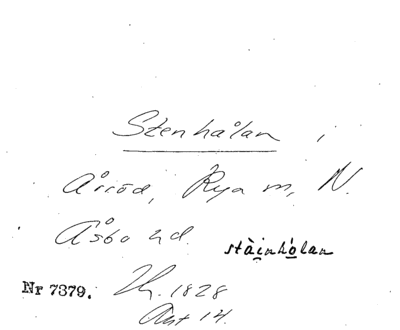 Stenhålan,
Årröd, Rya sn, N.
Åsbo hd.
stàinhòlan
Nr 7379. 1828
Akt 14.